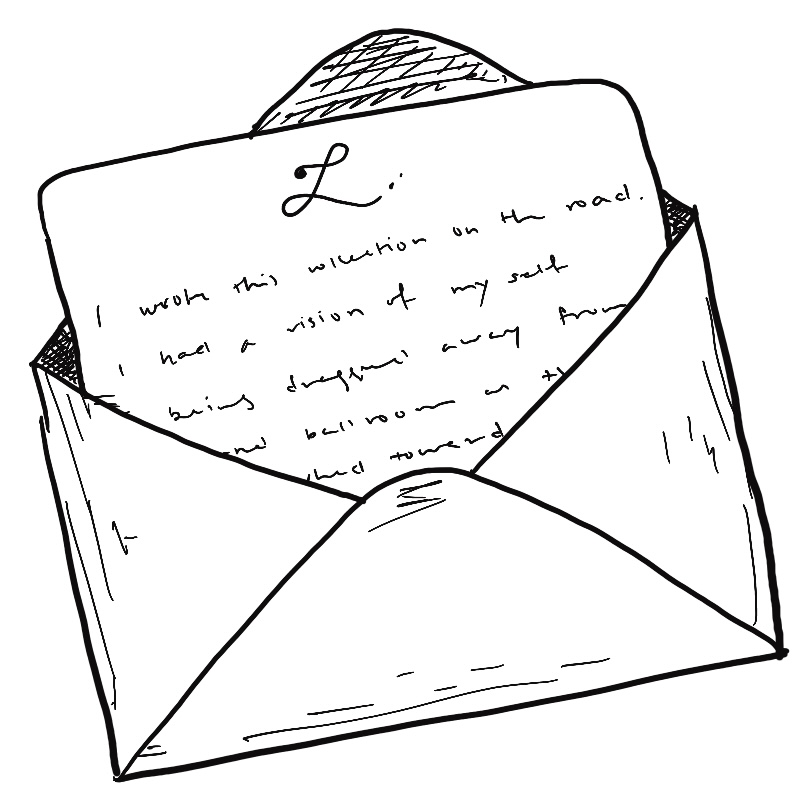 L.
I wrote this collection on the road.
I had a vision of my self
being dragged away from
ballroom as
toward